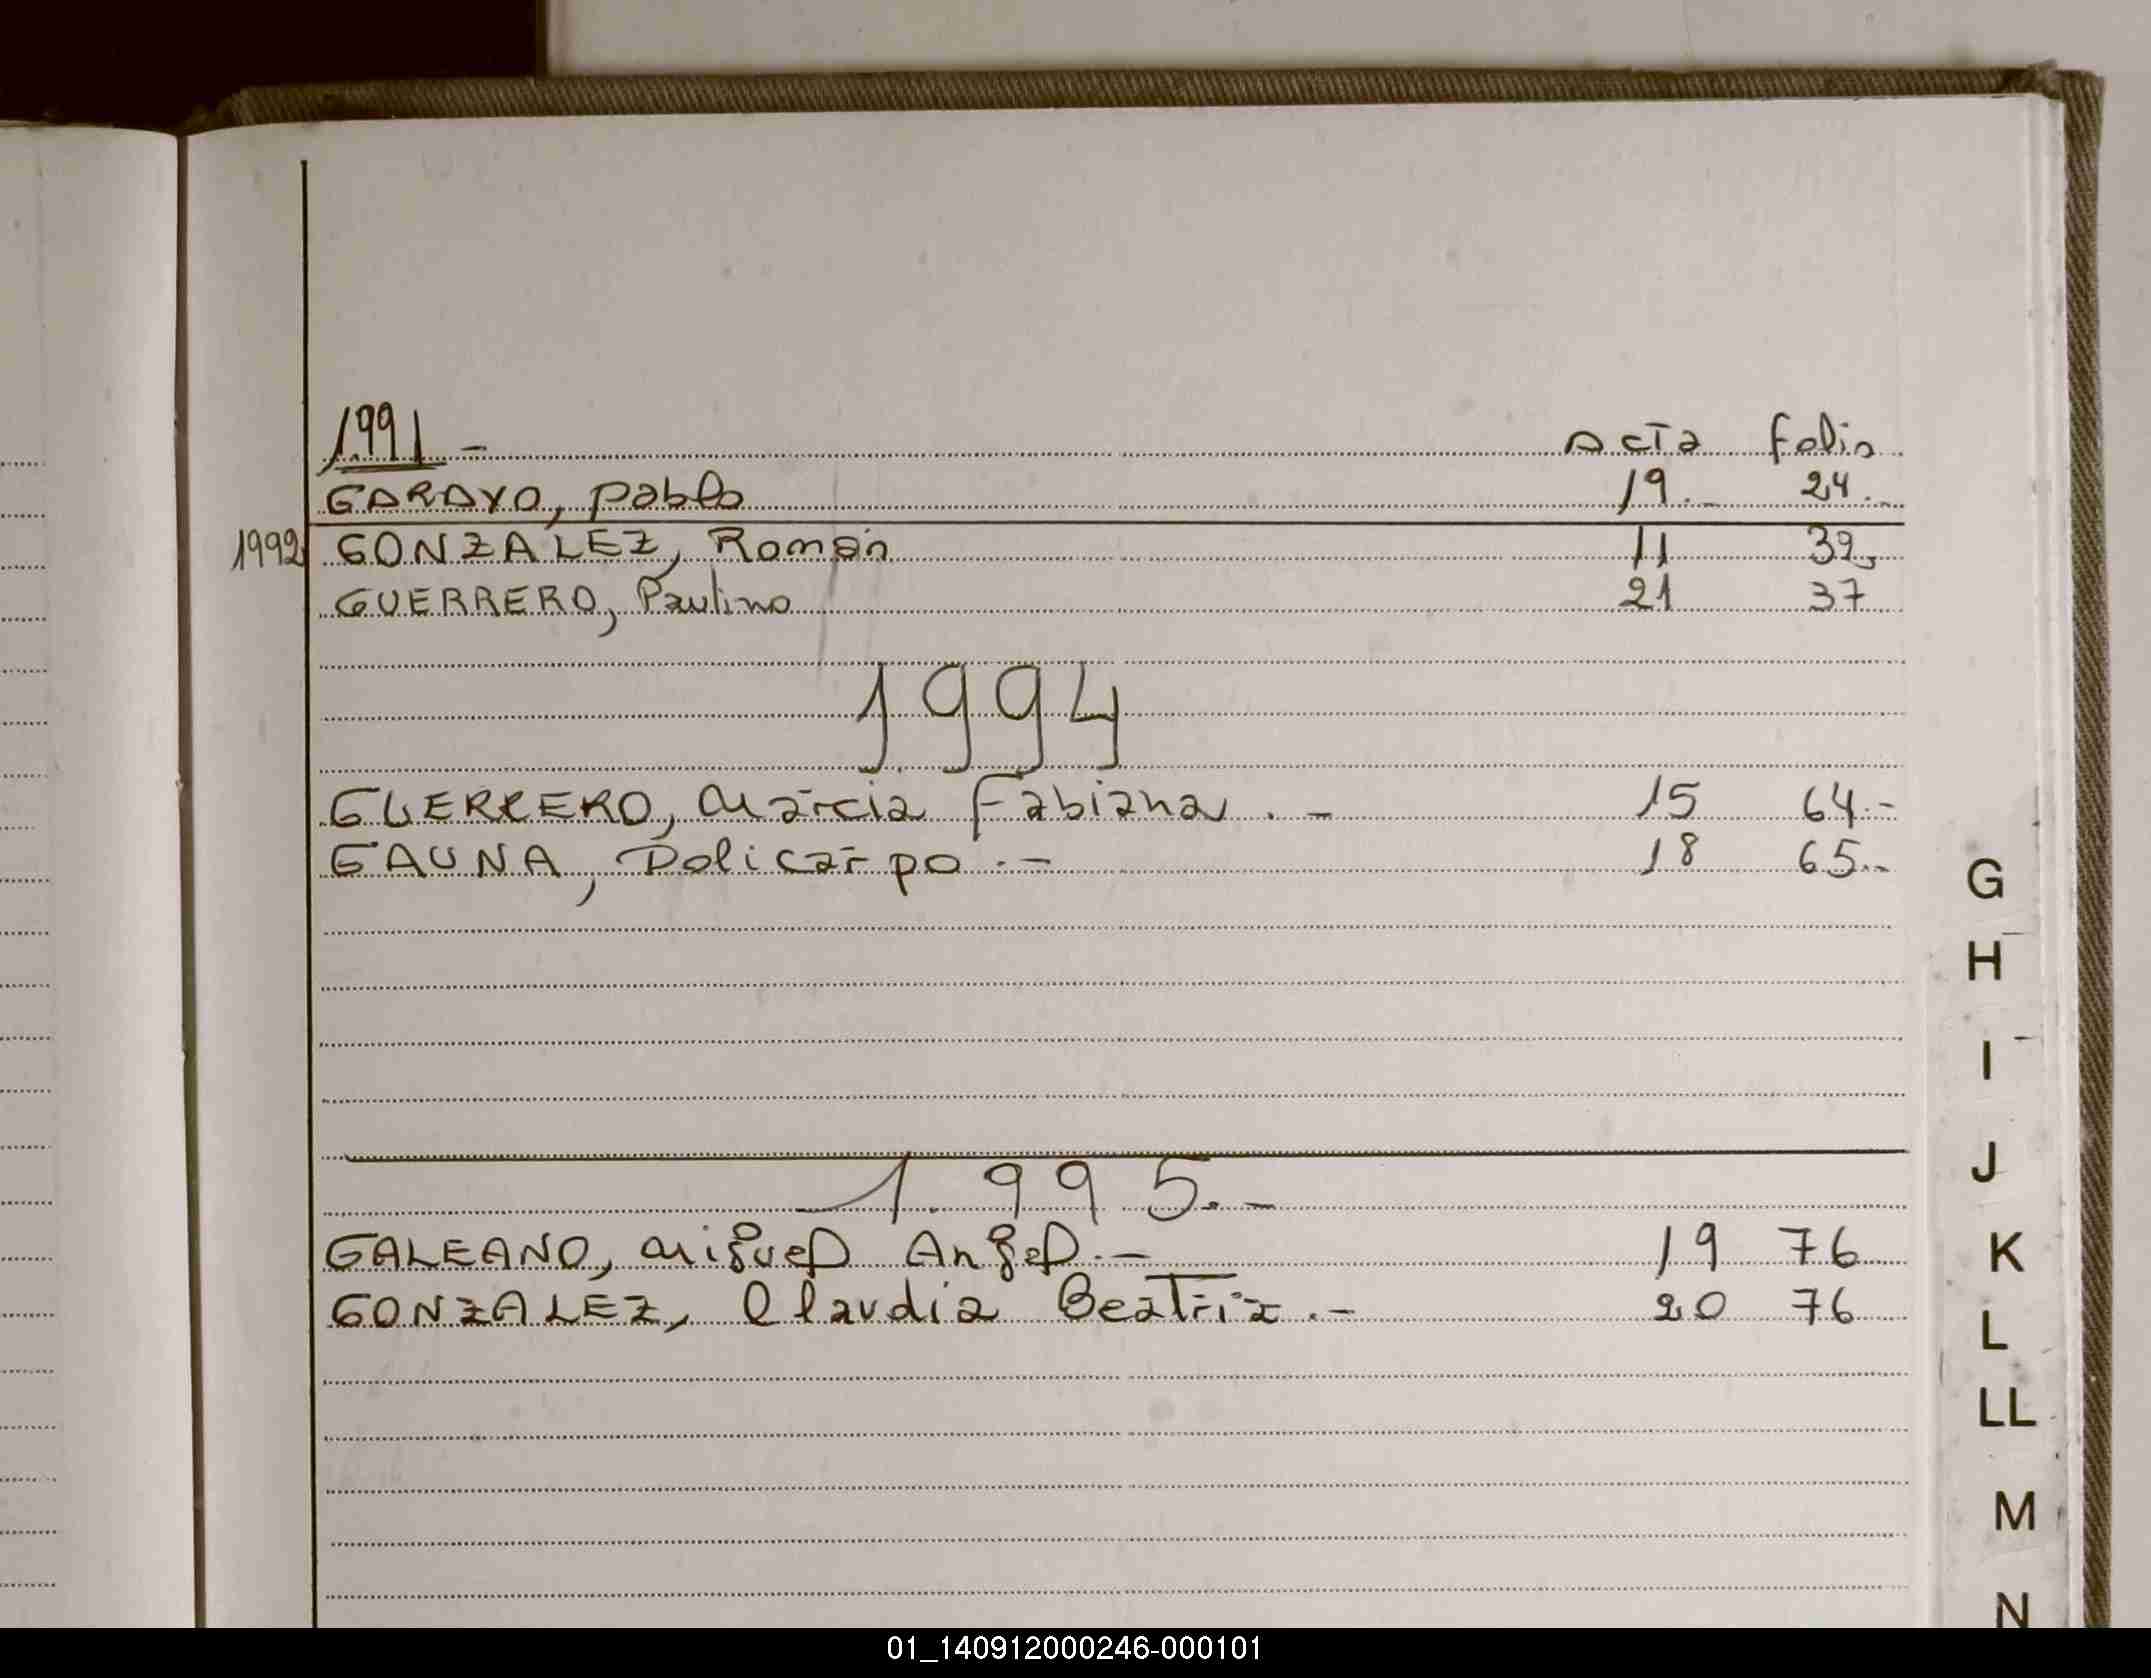 1.991 - Acta Folio
GARAYO, Pablo 19.- 24.-
1992 GONZALEZ, Román 11 32,
GUERRERO, Paulino 21 37
1994
GUERRERO, Marcia Fabiana.- 15 64.-
GAUNA, Policarpo.- 18 65.-
1.995.-
GALEANO, Miguel Angel.- 19 76
GONZALEZ, Claudia Beatriz.- 20 76
G
H
I
J
K
L
LL
M
N
01_140912000246-000101